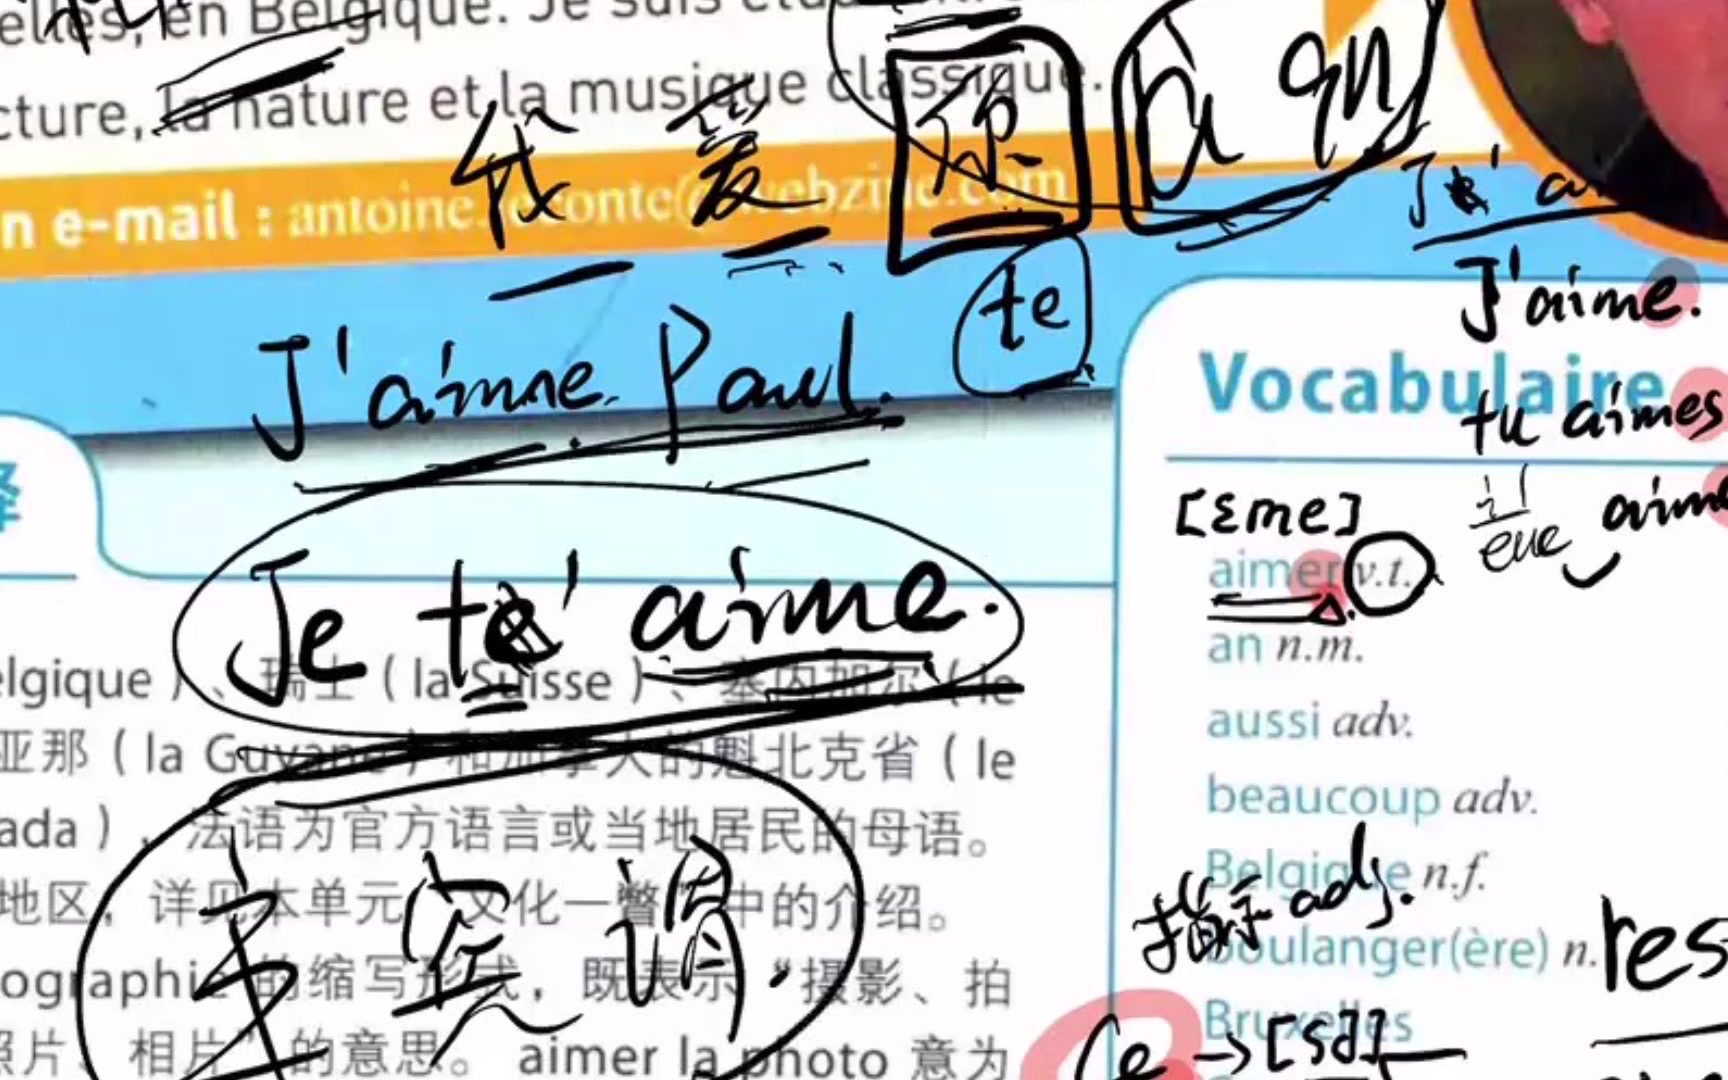 elles, en Belgique. Je suis
cture, la nature et la musique classique.
我 爱 你 à qn
n e-mail : antoine.
te
J'aime.
J'aime Paul.
Vocabulaire
tu aimes
il
elle aime
[εme]
aimer v.t.
Je t' aime.
an n.m.
elgique）、瑞士（la Suisse）、塞内加尔（le
aussi adv.
亚那（la Guyane）和加拿大的魁北克省（le
beaucoup adv.
ada），法语为官方语言或当地居民的母语。
Belgique n.f.
指示 adj.
地区，详见本单元“文化一瞥”中的介绍。
主 宾 谓.
boulanger(ère) n.
res
ographie 的缩写形式，既表示“摄影、拍
Bruxelles
照片、相片”的意思。 aimer la photo 意为